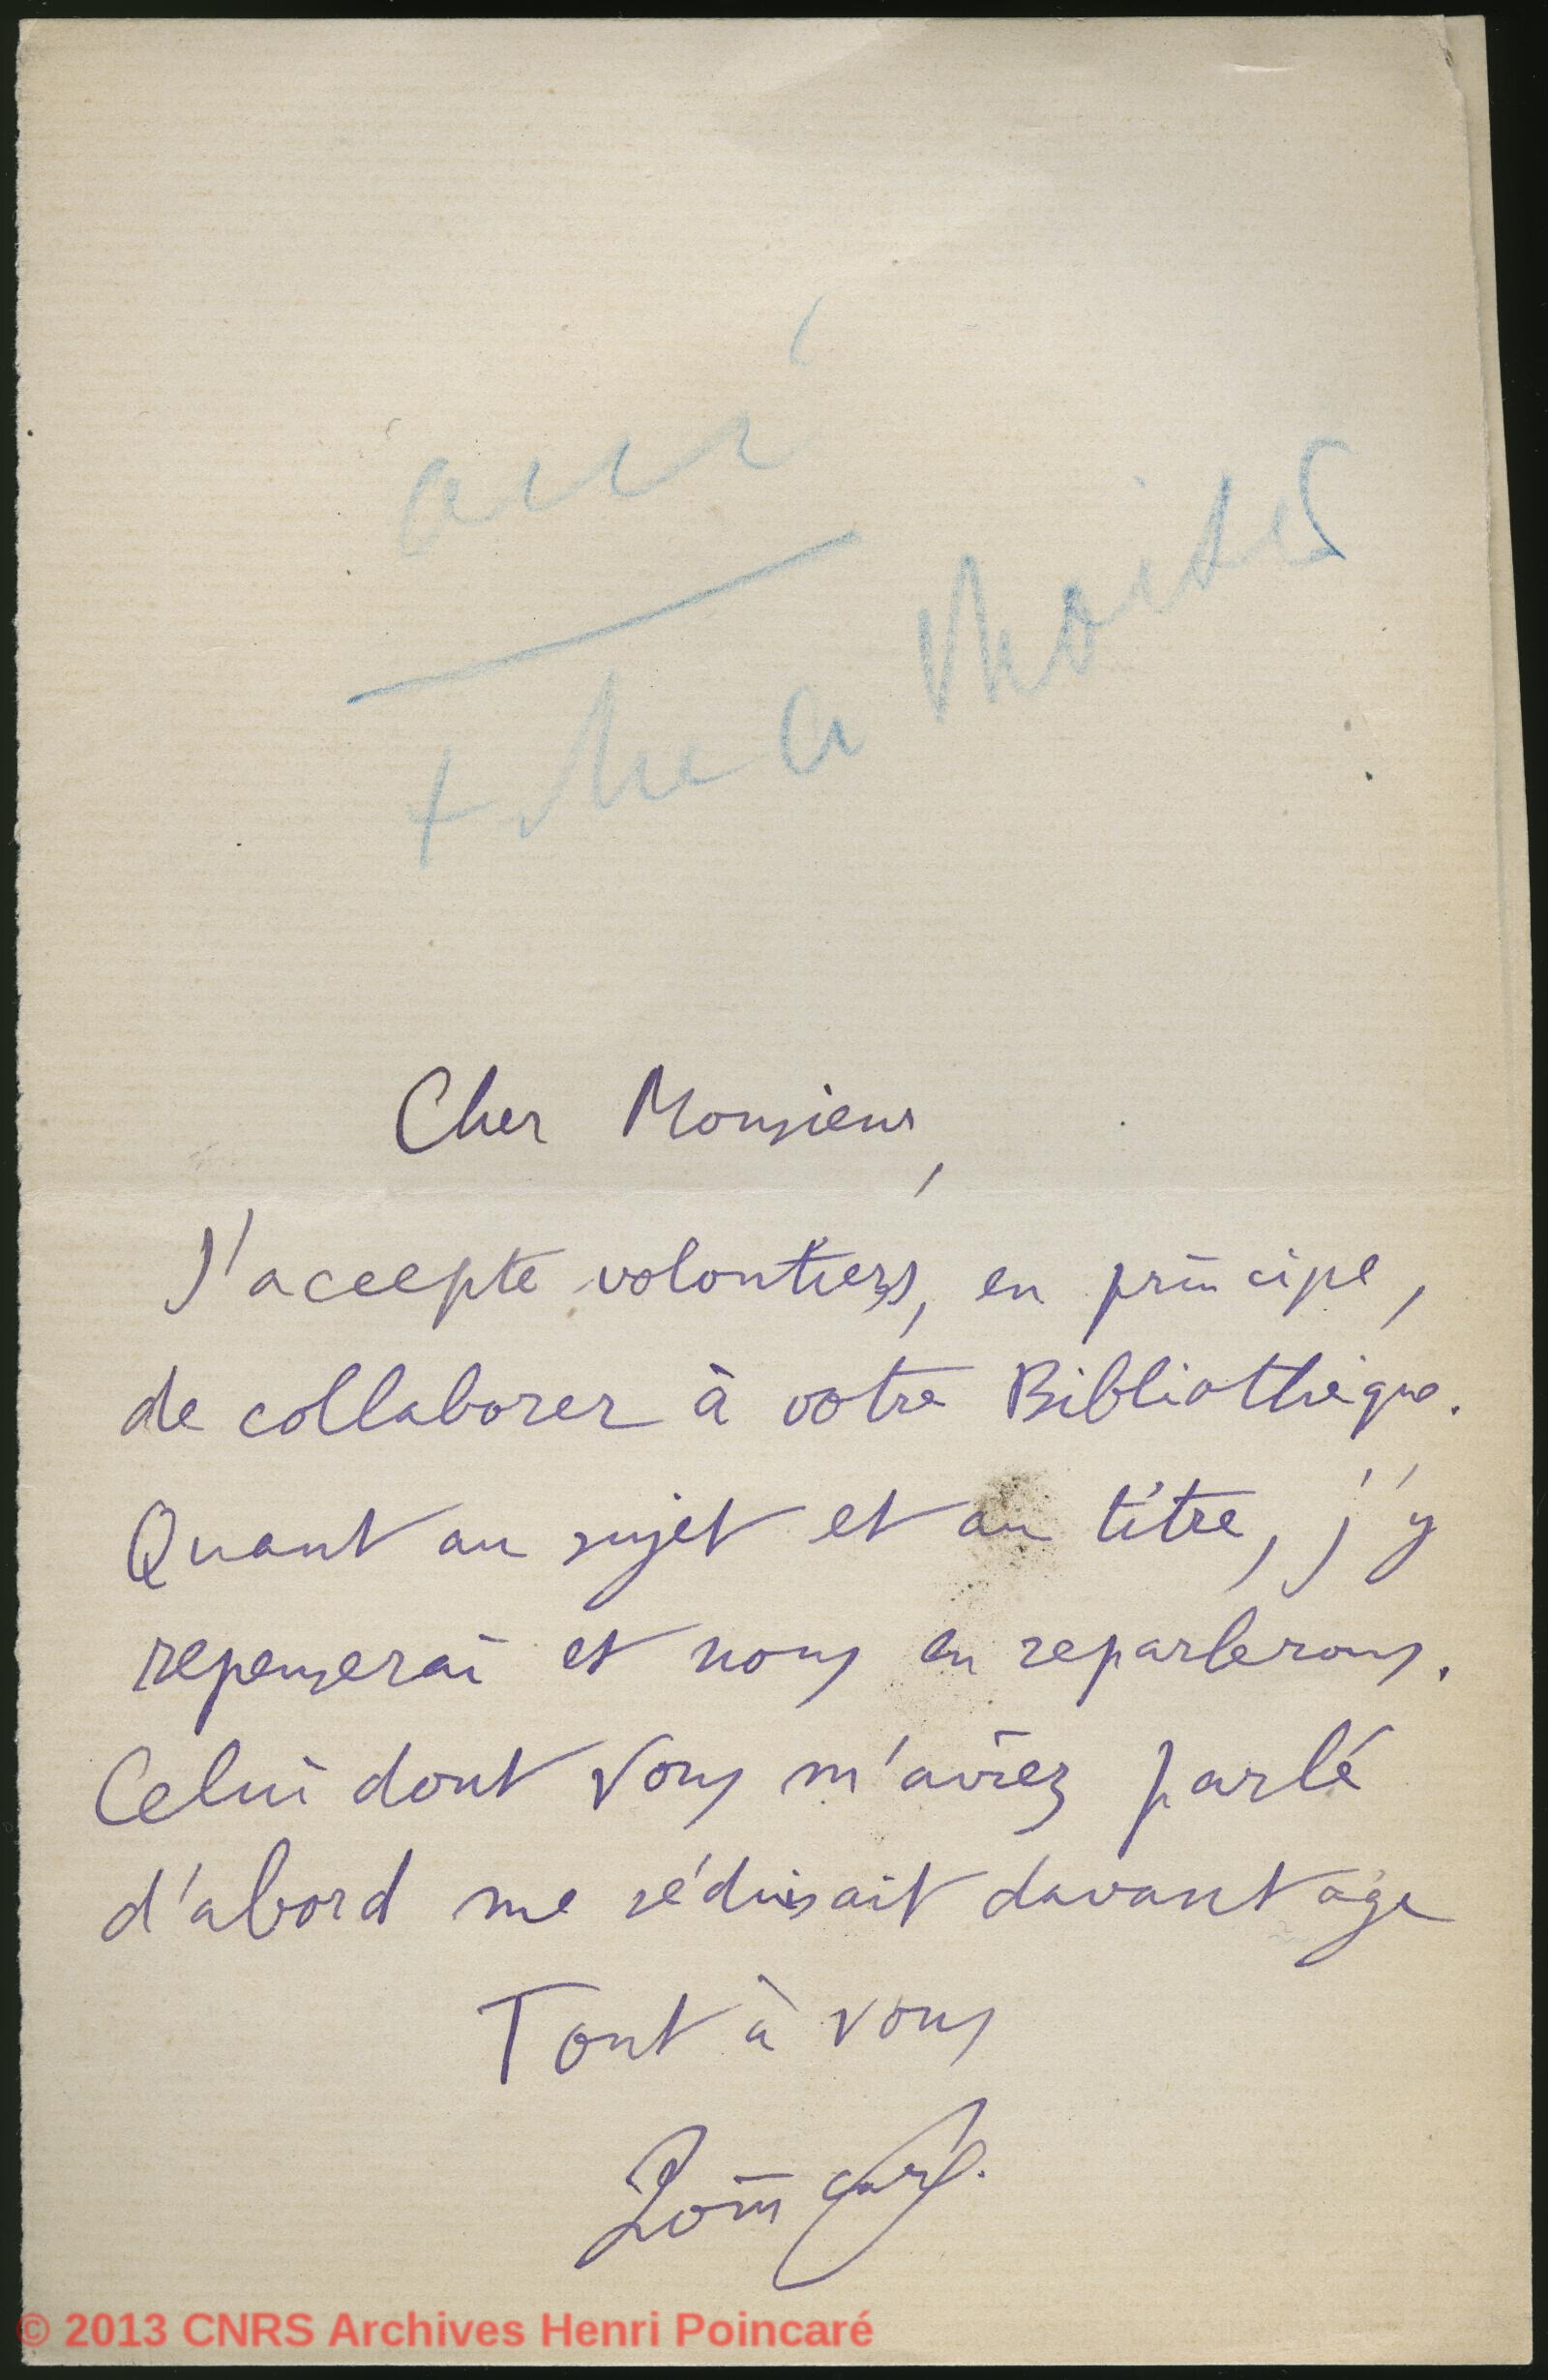 Cher Monsieur,
J'accepte volontiers, en principe,
de collaborer à votre Bibliothèque.
Quant au sujet et au titre, j'y
repenserai et nous en reparlerons.
Celui dont vous m'aviez parlé
d'abord me séduisait davantage
Tout à vous
Poincaré
© 2013 CNRS Archives Henri Poincaré